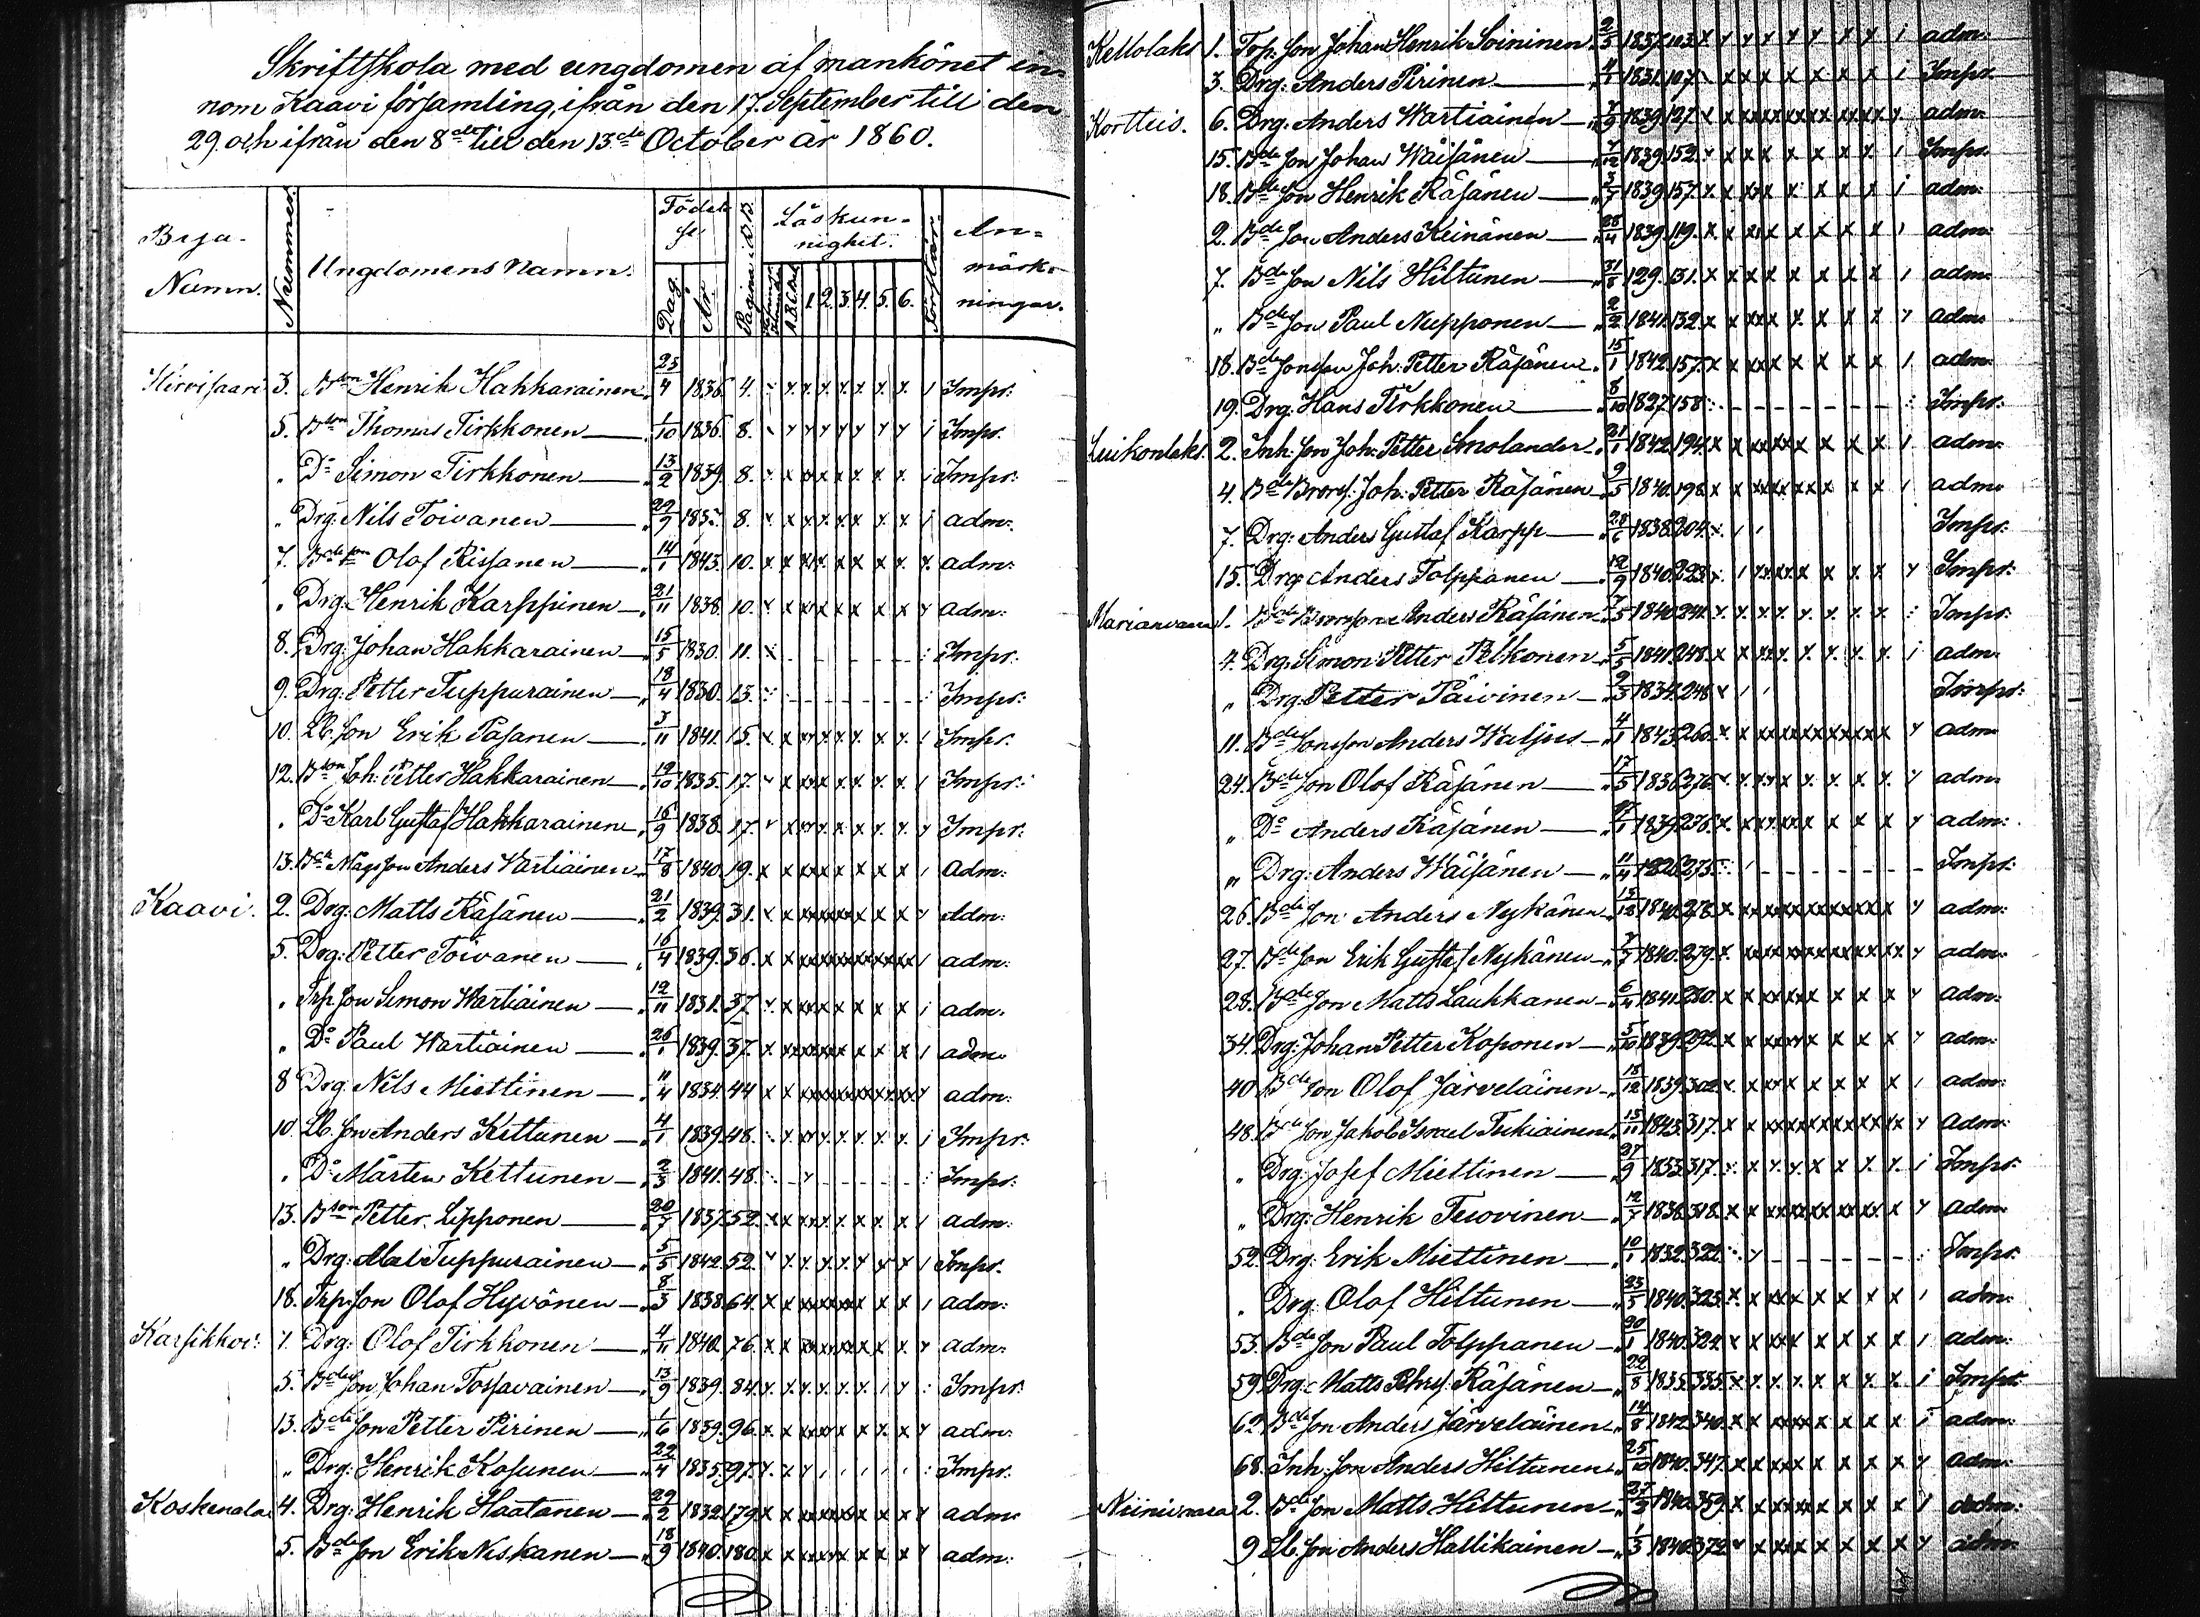 Skriftskola med ungdomen af mankönet in-
nom Kaavi församling, ifrån den 17. September till den
29. och ifrån den 8de till den 13de October år 1860.
Bya-Namn. Nummer. Ungdomens Namn. Födelse Dag. År. Pagina Läskunnighet. A.B.C. Bok 1. 2. 3. 4. 5. 6. Anmärkningar.
Hirvisaari 3. Bson Henrik Hakkarainen 25/4 1836. 4. Impr:
5. Bson Thomas Tirkkonen 1/10 1836. 8. Impr.
" Do Simon Tirkkonen 13/2 1839. 8. Impr:
" Drg: Nils Toivanen 29/9 8. adm.
7. Bde son Olof Rissanen 14/1 1843. 10. adm.
" Drg: Henrik Karppinen 21/11 1838. 10. adm:
8. Drg: Johan Hakkarainen 15/5 1830. 11. Impr:
9. Drg: Petter Tuppurainen 18/4 1830. 13. Impr:
10. Lb. Son Erik Pasanen 3/11 1841. 15. Impr.
12. Bson Joh: Petter Hakkarainen 19/10 1835. 17. Impr:
" Do Karl Gustaf Hakkarainen 16/9 1838. 17. Impr:
13. Bde Mågs Son Anders Vartiainen 17/8 1840. 19. Adm:
Kaavi. 2. Drg: Matts Räsänen 21/2 1839. 31. Adm:
5. Drg: Petter Toivanen 16/4 1839. 36. adm:
" Trp Son Simon Wartiainen 12/11 1831. 37. adm.
" Do Paul Wartiainen 26/1 1839. 37. adm
8 Drg Nils Miettinen 11/4 1834. 44 adm:
10 Lb. Son Anders Kettunen 4/1 1839. 48. Impr:
" Do Mårten Kettunen 2/3 1841. 48. Impr:
13. Bson Petter Lipponen 20/7 1837. 52. adm:
" Drg: Abel Tuppurainen 5/5 1842. 52. Impr.
18. Trp: Son Olof Hyvönen 8/3 1838. 64. adm:
Karsikkov: 1. Drg: Olof Tirkkonen 4/11 1840. 76. adm.
5. Bde Son Johan Tossavainen 13/9 1839. 84. Impr:
13. Bde Son Petter Pirinen 1/6 1839. 96. adm.
" Drg: Henrik Kosunen 22/4 1835. 97. Impr:
Koskenala 4. Drg: Henrik Haatanen 29/2 1832. 179. adm
5. Bde Son Erik Niskanen 18/9 1840. 180. adm:
Kettolaks 1. Trp: Son Johan Henrik Soininen 2/5 1837. 103. adm:
3. Drg: Anders Pirinen 1831. 107. Impr.
Kortteis. 6. Drg. Anders Wartiainen 1839. 127. adm
15. Bde Son Johan Wäisänen 1839. 152. Impr.
18. Bde Son Henrik Räsänen 1839. 157. adm:
2. Bde Son Anders Keinänen 28/4 1839. 119. adm:
7. Bde Son Nils Hiltunen 129. 131. adm:
" Bde Son Paul Nupponen 2/2 1841. 132. adm
18. Bde Sonson Joh: Petter Räsänen 15/1 1842. 157. adm:
19. Drg: Hans Tirkkonen 8/10 1827. 158. Impr:
Luikonlaks. 2. Inh: Son Joh: Petter Smolander 21/1 1842. 194. adm:
4. Bde Brors: Joh: Petter Räsänen 9/5 1840. 198. adm
7. Drg: Anders Gustaf Karpp 1838. 204. Impr:
15. Drg: Anders Tolppanen 12/9 1840. 223. Impr:
Mariaraara 1. Bde Brorson Anders Räsänen 1840. 241. Impr:
4. Drg: Simon Petter Pelkonen 5/5 1841. 248. adm.
" Drg: Petter Päivinen 9/3 1834. 248 Impr:
11. Bde Sonson Anders Waljus 4/1 1843. 260. adm
24. Bde Son Olof Räsänen 17/5 1836. 276. adm
" Do Anders Räsänen 1839. 276. adm:
" Drg: Anders Wäisänen 11/4 1826. 275. Impr:
26. Bde Son Anders Nykänen 278. adm:
27. Bde Son Erik Gustaf Nykänen 1840. 279. adm:
28. Bde Son Matts Laukkanen 6/4 1841. 280. adm.
34. Drg: Johan Petter Koponen 5/10 1839. 292. adm:
40. Bde Son Olof Järveläinen 1839. 302. adm:
48. Bde Son Jakob Israel Tukiainen 15/11 1843. 317. Adm:
" Drg: Josef Miettinen 27/9 1833. 317. Impr:
" Drg: Henrik Teuvinen 12/7 1838. 318. adm
52. Drg: Erik Miettinen 10/1 1832. 322. Impr.
" Drg: Olof Hiltunen 23/5 1840. 323. adm.
53. Bde Son Paul Tolppanen 20/1 1840. 324. adm:
59. Drg: Matts Räsänen 22/8 1835. 335. Impr:
62. Bde Son Anders Järveläinen 14/8 1842. 340. adm:
68. Inh: Son Anders Hiltunen 25/10 1840. 347. adm:
Niinivaara 2. Bde Son Matts Hiltunen 1840. 359. adm:
9 Lb. Son Anders Hallikainen 1/3 1840. 372. adm.